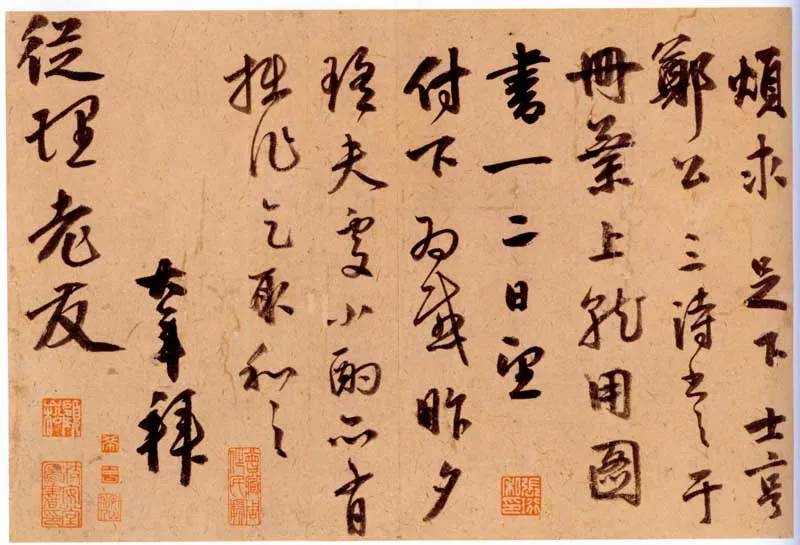 煩求 足下 士亨
鄭公 三詩书之于
冊葉上就用圖
書一二日望
付下為感昨夕
夫處小酌亦有
拙作乞取和之
大年拜
從理老友